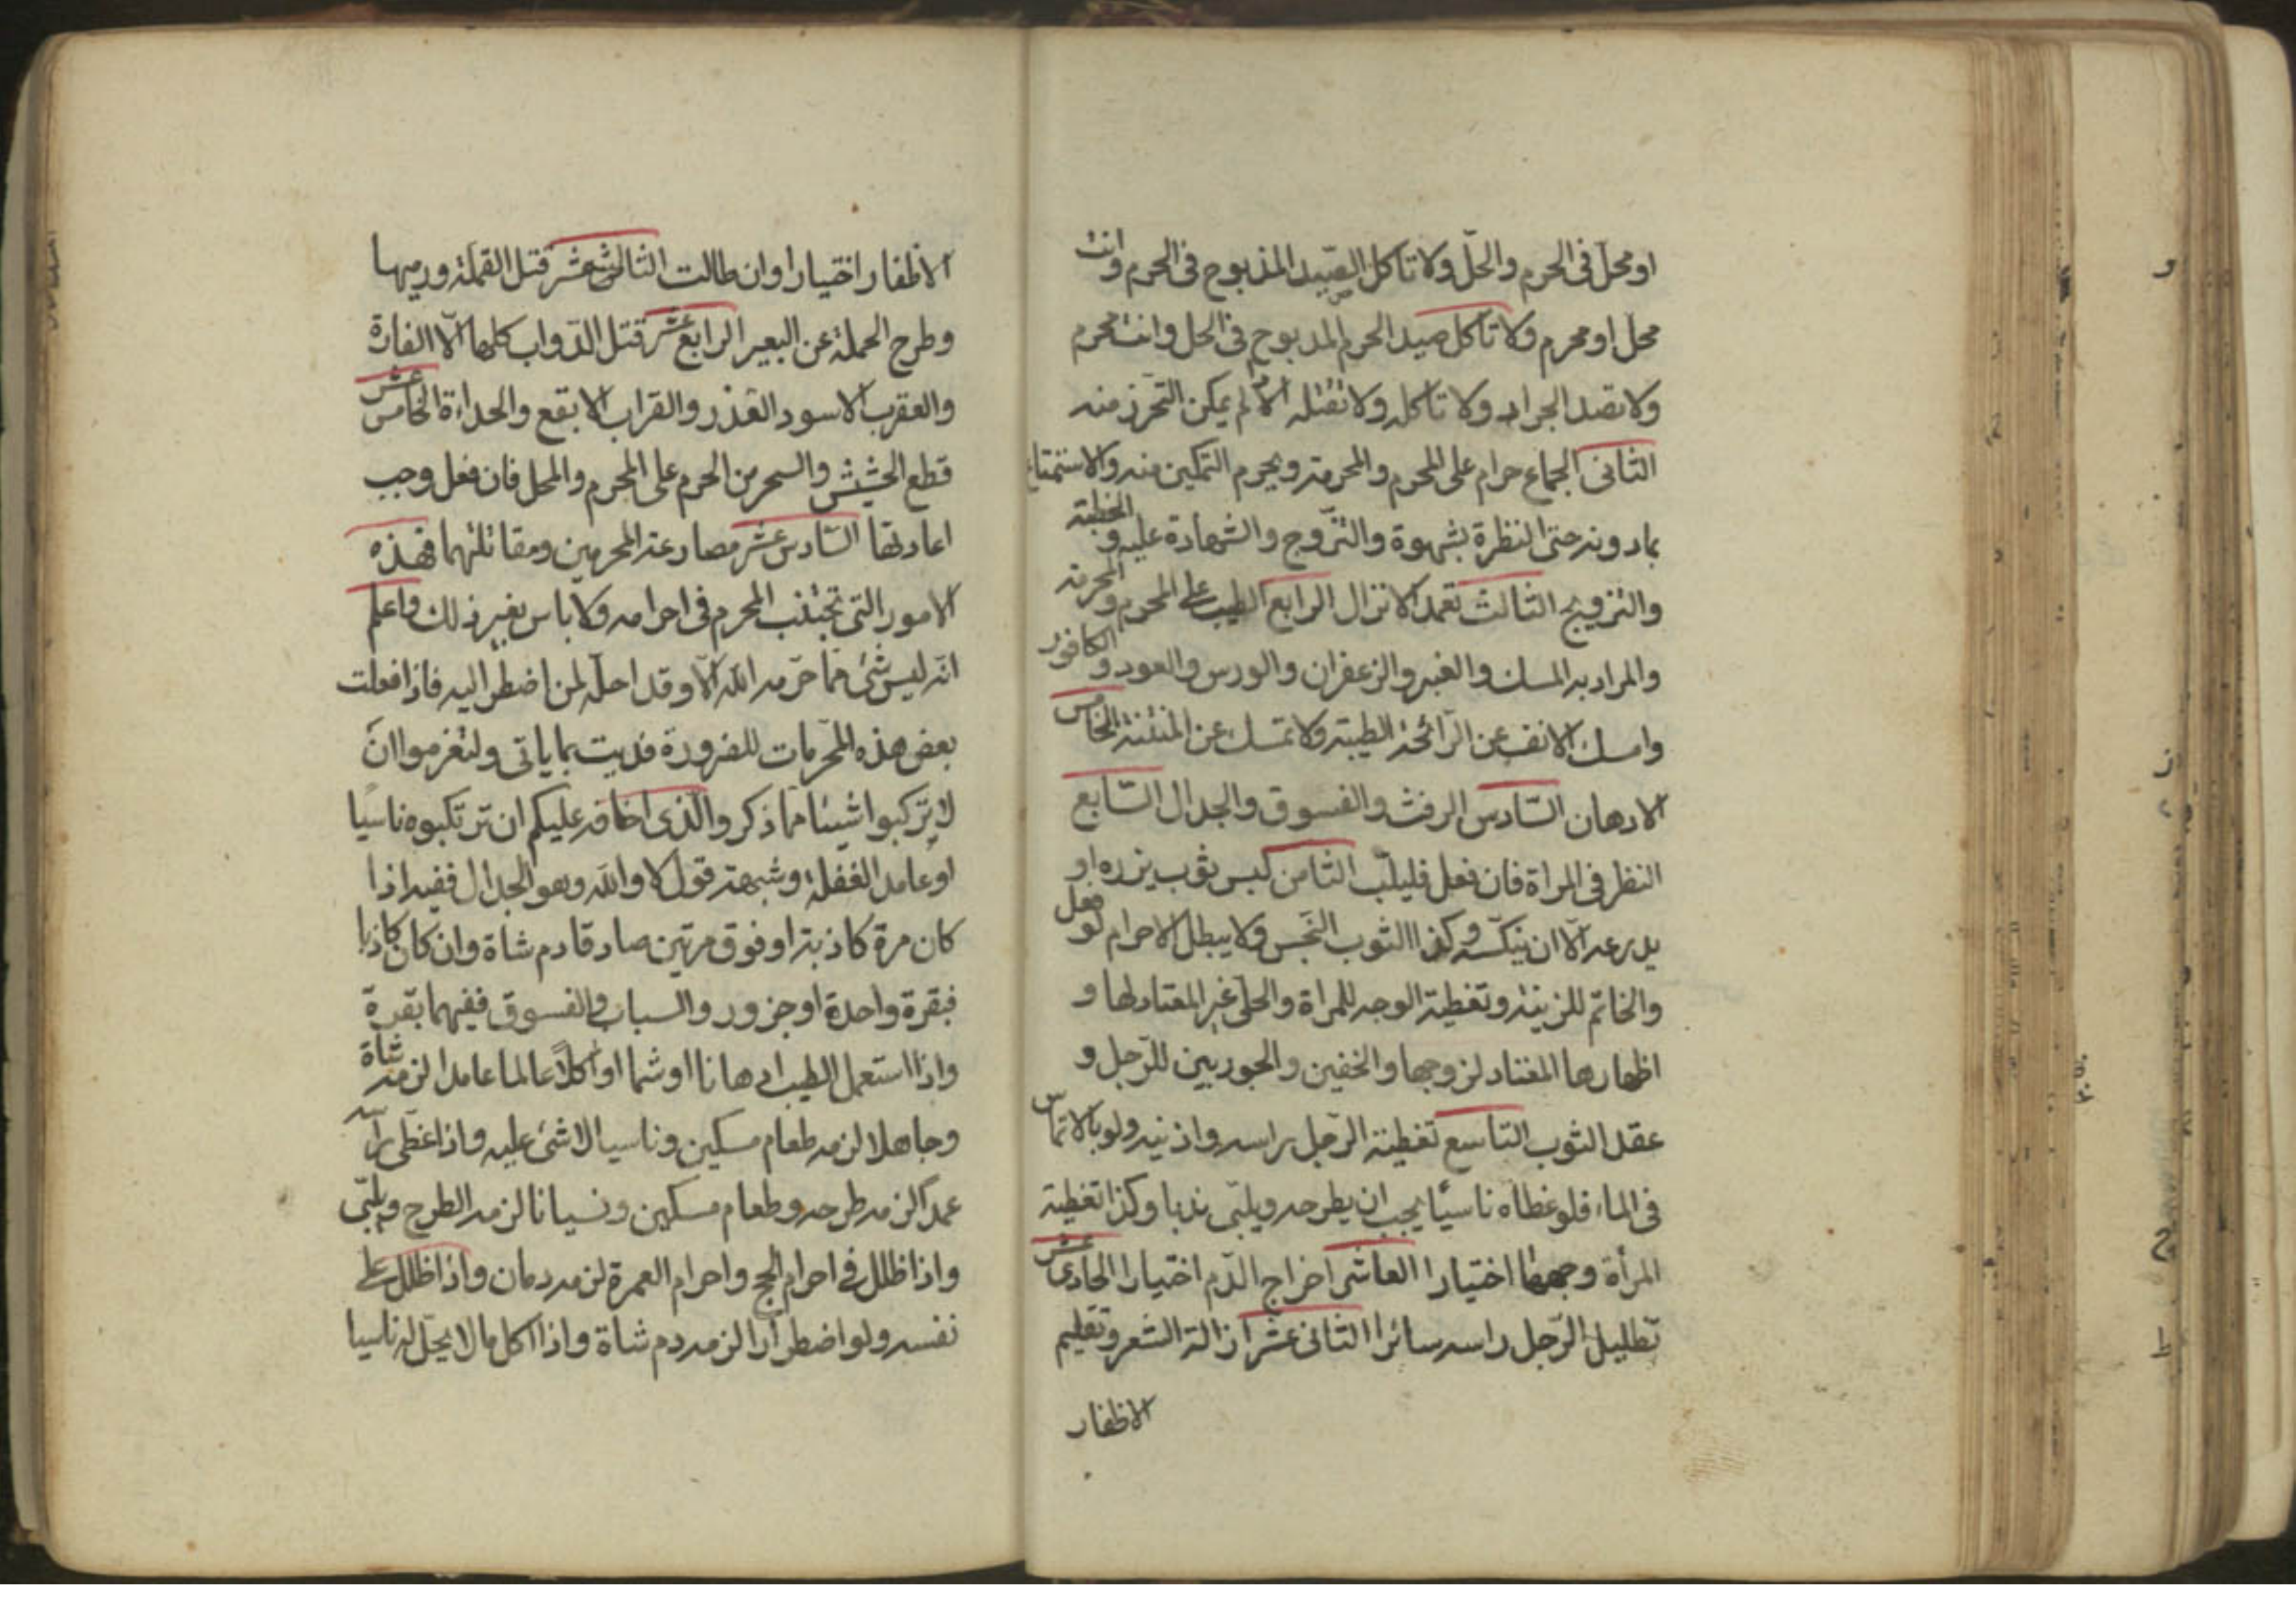 او محل فى الحرم والحلّ ولا تاكل الصّيد المذبوح فى الحرم وانت
محل او محرم ولا تاكل صيد الحرم المذبوح فى الحل وانت محرم
ولا تصد الجراد ولا تاكله ولا تقتله الا لم يمكن التحرّز منه
الثانى الجماع حرام على المحرم والمحرمة ويحرم التمكين منه والاستمتاع
بما دونه حتى النظرة بشهوة والتزّوج والشهادة عليه والخطبة
والتزويج الثالث تعمد الانزال الرابع الطيب على المحرم والمحرمة
والمراد به المسك والعنبر والزعفران والورس والعود والكافور
وامسك الانف عن الرّائحة الطيبة ولا تمسك عن المنتنة الخامس
الادهان السّادس الرفث والفسوق والجدال السّابع
النظر فى المراة فان فعل فليلبّ الثامن لبس ثوب يزره او
يدرعه الّا ان ينكّسه وكذا الثوب النّجس ولا يبطل الاحرام لو فعل
والخاتم للزينة وتغطية الوجه للمراة والحلى غير المعتاد لها و
اظهارها المعتاد لزوجها والخفين والجوربين للرّجل و
عقد الثوب التاسع تغطية الرّجل براسه واذنيه ولو بالاتماس
فى الماء فلو غطاه ناسيًا يجب ان يطرحه ويلبّى ندبا وكذا تغطية
المرأة وجهها اختيارا العاشر اخراج الدّم اختيارا الحادى عشر
تظليل الرّجل راسه سائرا الثانى عشر ازالة الشعر وتقليم
الاظفار
الاظفار اختيارا وان طالت الثالث عشر قتل القملة ورميها
وطرح الحملة عن البعير الرابع عشر قتل الدّواب كلها الّا الفارة
والعقرب الاسود الغدر والقراب الابقع والحداءة الخامس عشر
قطع الحشيش والسحر من الحرم على المحرم والمحل فان فعل وجب
اعادتها السّادس عشر مصارعة المحرمين ومقاتلتهما فهذه
الامور التى تجتنب المحرم فى احرامه ولا باس بغير ذلك واعلم
انّه ليس شئ ممّا حرّمه الله الّا وقد احلّه لمن اضطر اليه فاذا فعلت
بعض هذه المحرّمات للضرورة فديت بما ياتى ولتغرموا انّ
لا تركبوا شيئا ممّا ذكر والّذى اخافه عليكم ان ترتكبوه ناسيًا
او عامد الغفلة وشبهة قول لا والله وهو الجدال ففيه اذا
كان مرة كاذبة او فوق مرتين صادقا دم شاة وان كان كاذبا
فبقرة واحدة او جزور والسباب والفسوق ففيهما بقرة
واذا استعمل الطيب ادهانا او شما او اكلًا عالما عامدا لزمه شاة
وجاهلا لزمه طعام مسكين وناسيا لا شئ عليه واذا غطّى راسه
عمدًا لزمه طرحه وطعام مسكين ونسيانا لزمه الطرح ويلبّى
واذا ظلل فى احرام الحج واحرام العمرة لزمه دمان واذا ظلل على
نفسه ولو اضطرارا لزمه دم شاة واذا اكل ما لا يحلّ له ناسيا